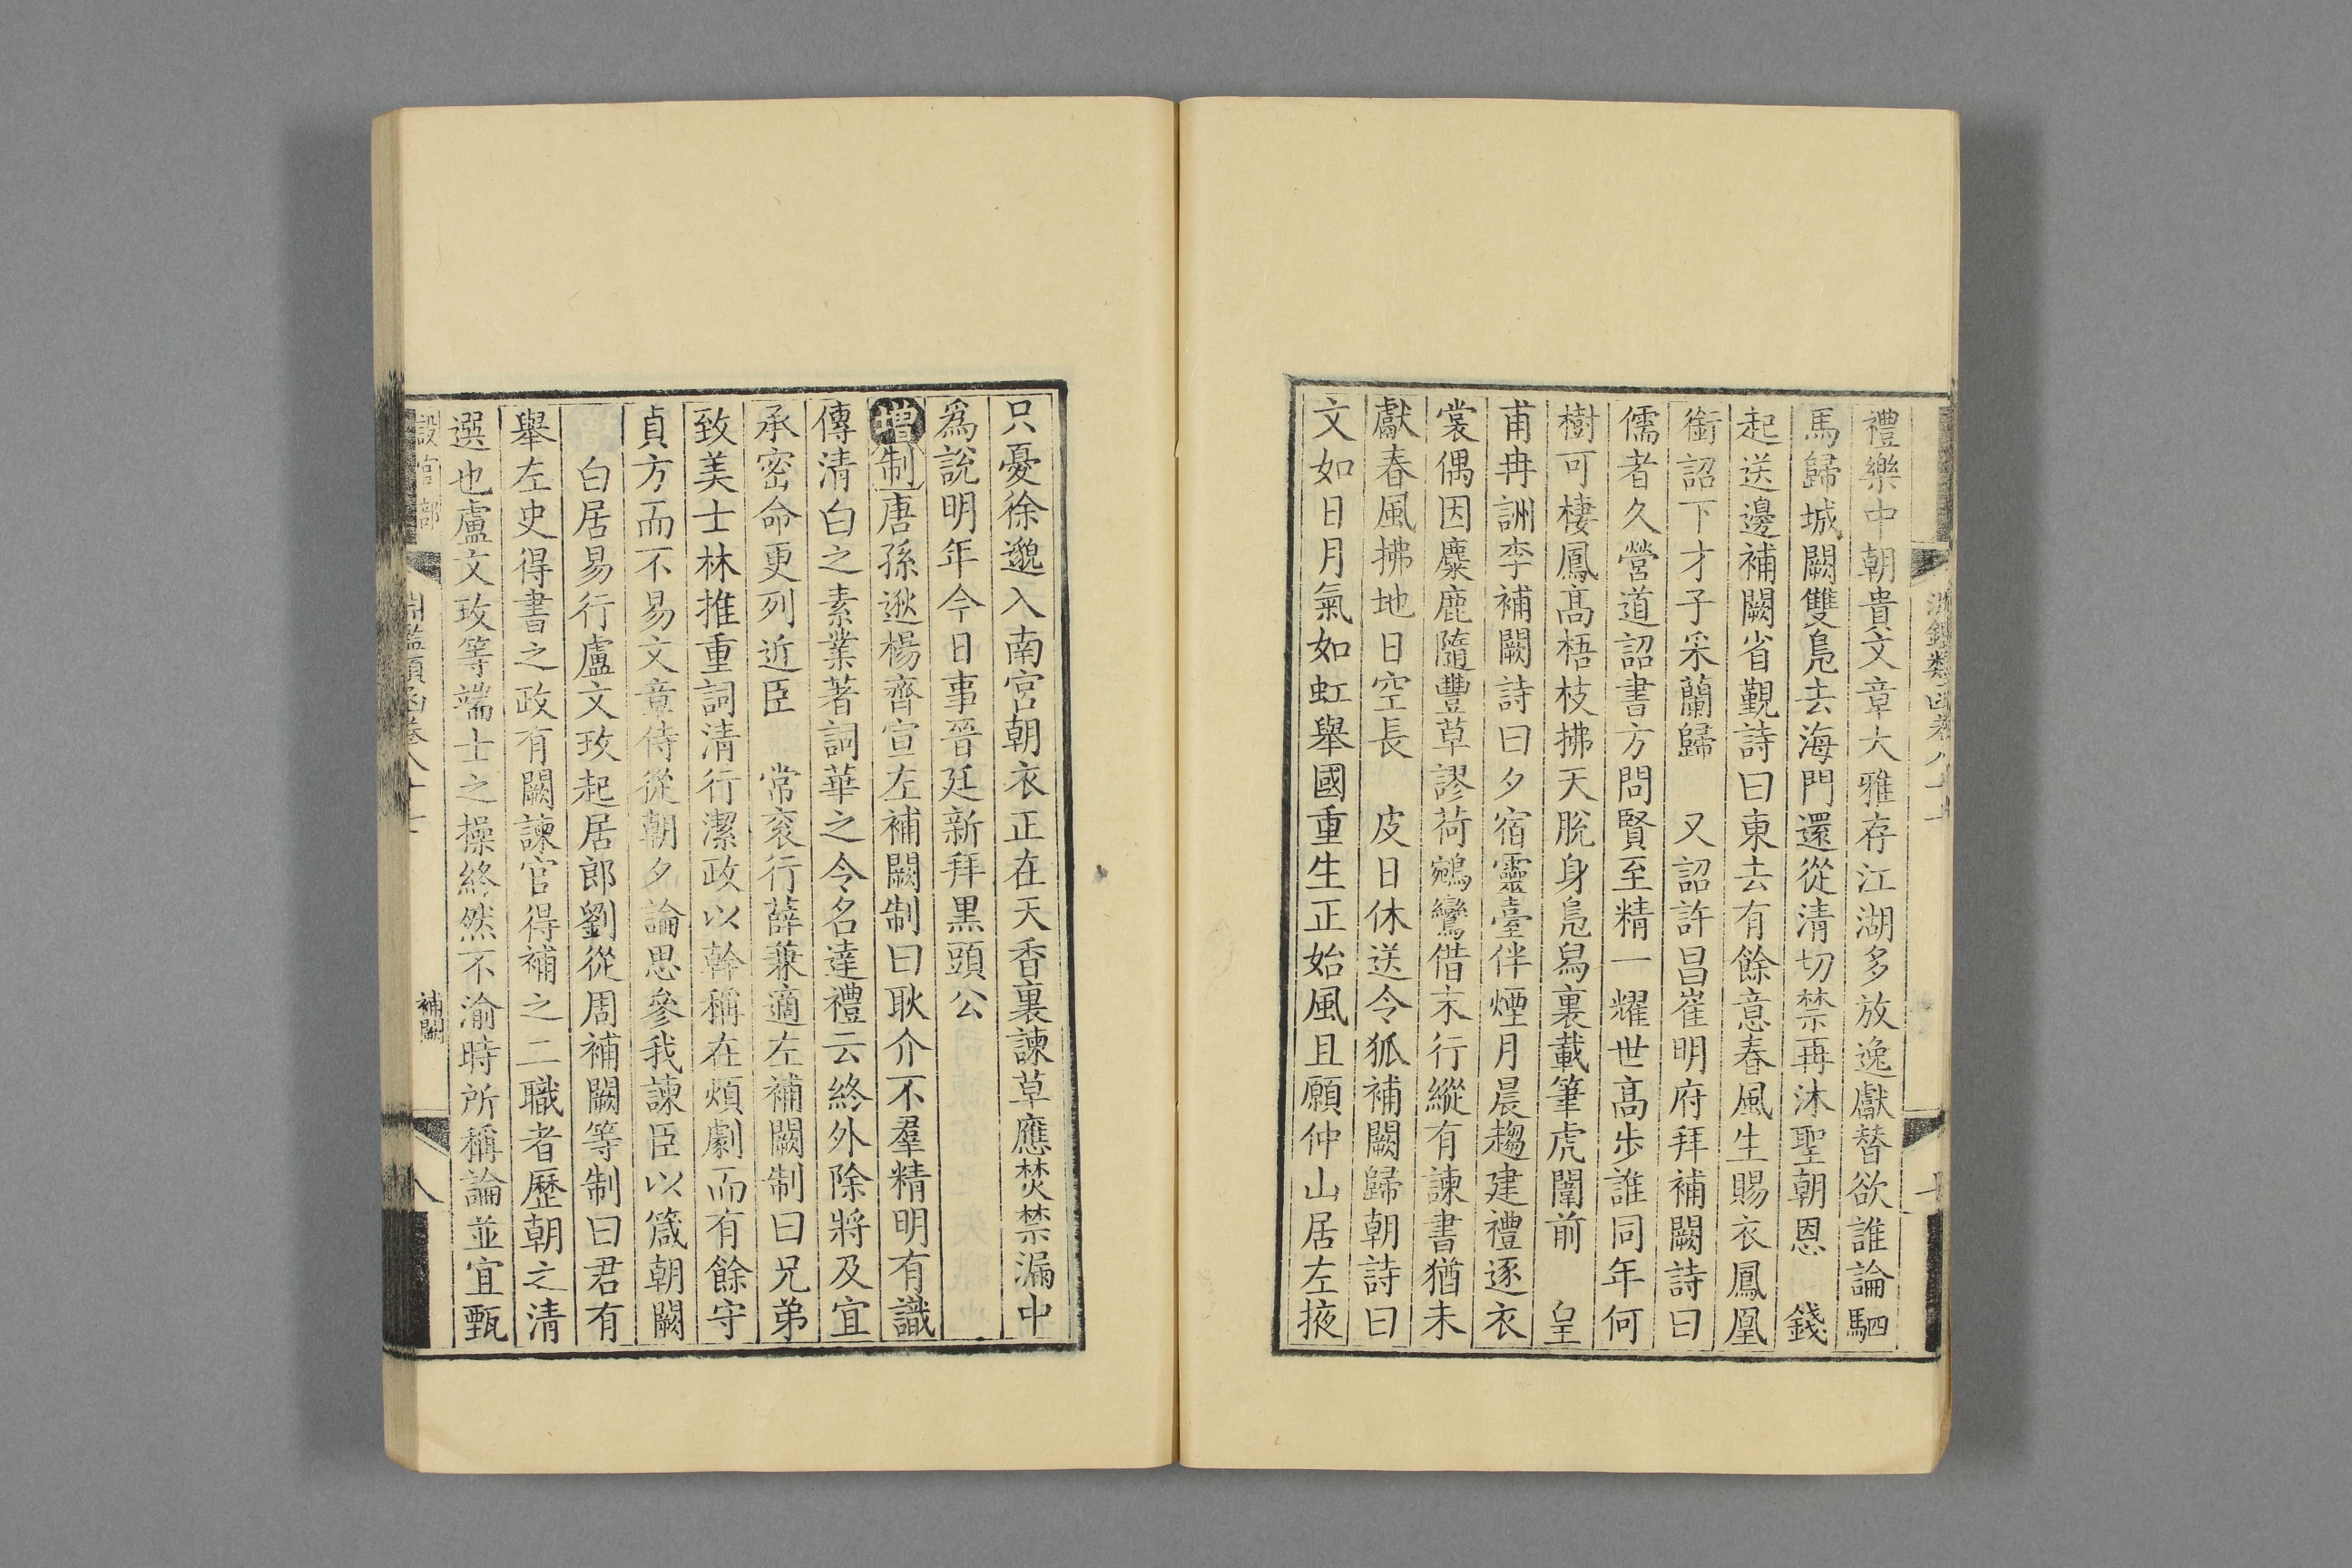 禮樂中朝貴文章大雅存江湖多放逸獻替欲誰論駟
馬歸城闕雙鳬去海門還從清切禁再沐聖朝恩　錢
起送邊補闕省覲詩曰東去有餘意春風生賜衣鳳凰
銜詔下才子采蘭歸　又詔許昌崔明府拜補闕詩曰
儒者久營道詔書方問賢至精一耀世高步誰同年何
樹可棲鳳高梧枝拂天脫身鳬舄裏載筆虎闈前　皇
甫冉詶李補闕詩曰夕宿靈臺伴煙月晨趨建禮逐衣
裳偶因麋鹿隨豐草謬荷鵷鸞借末行縱有諫書猶未
獻春風拂地日空長　皮日休送令狐補闕歸朝詩曰
文如日月氣如虹舉國重生正始風且願仲山居左掖
只憂徐邈入南宮朝衣正在天香裏諫草應焚禁漏中
爲說明年今日事晉廷新拜黑頭公
增制唐孫逖楊齊宣左補闕制曰耿介不羣精明有識
傳清白之素業著詞華之令名達禮云終外除將及宜
承密命更列近臣　常衮行薛蒹適左補闕制曰兄弟
致美士林推重詞清行潔政以幹稱在煩劇而有餘守
貞方而不易文章侍從朝夕論思參我諫臣以箴朝闕
白居易行盧文玫起居郎劉從周補闕等制曰君有
舉左史得書之政有闕諫官得補之二職者歷朝之清
選也盧文玫等端士之操終然不渝時所稱論並宜甄
設官部
補闕
八